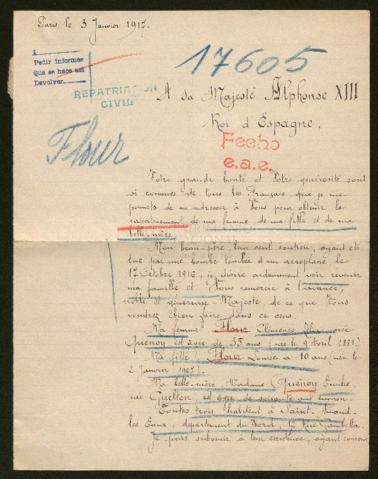 Paris, le 3 Janvier 1917.
17605
Pedir informes
Que se hace así
Devolver
REPATRIACION
CIVIL
A Sa Majesté Alphonse XIII
Roi d'Espagne,
Fecho
e.a.e.
Flour
Votre grande bonté et Votre générosité sont
si connues de tous les Français, que je me
permets de m'adresser à Vous pour obtenir le
rapatriement de ma femme, de ma fille et de ma
belle-mère.
Mon beau-père, leur seul soutien, ayant été
tué par une bombe tombée d'un aéroplane le
17 Octobre 1916, je désire ardemment voir revenir
ma famille et Vous remercie à l'avance,
noble et généreuse Majesté de ce que Vous
voudrez bien faire dans ce sens.
Ma femme Flour Clémence
Quenoy est âgée de 35 ans (née le 9 avril 1881)
Ma fille Flour Louise a 10 ans née le
2 Janvier 1907).
Ma belle-mère Madame Quenoy Emilie
née est âgée de soixante ans environ.
Toutes trois habitent à Saint-Amand
les Eaux, département du Nord,
Je puis subvenir à leur existence, ayant